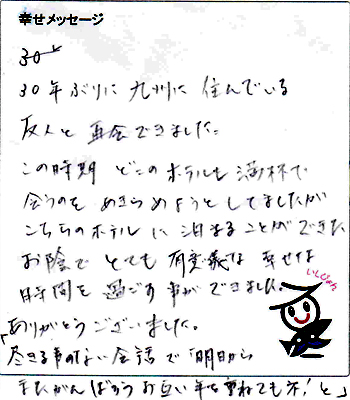 幸せメッセージ
30
30年ぶりに九州に住んでいる
友人と再会できました。
この時期どこのホテルも満杯で
会うのもあきらめようとしてましたが
こちらのホテルに泊まることができた
お陰でとても有意義な幸せな
時間を過ごす事ができました。
ありがとうございました。
尽きる事のない会話で「明日から
またがんばろうお互い年を重ねてもネ!と」